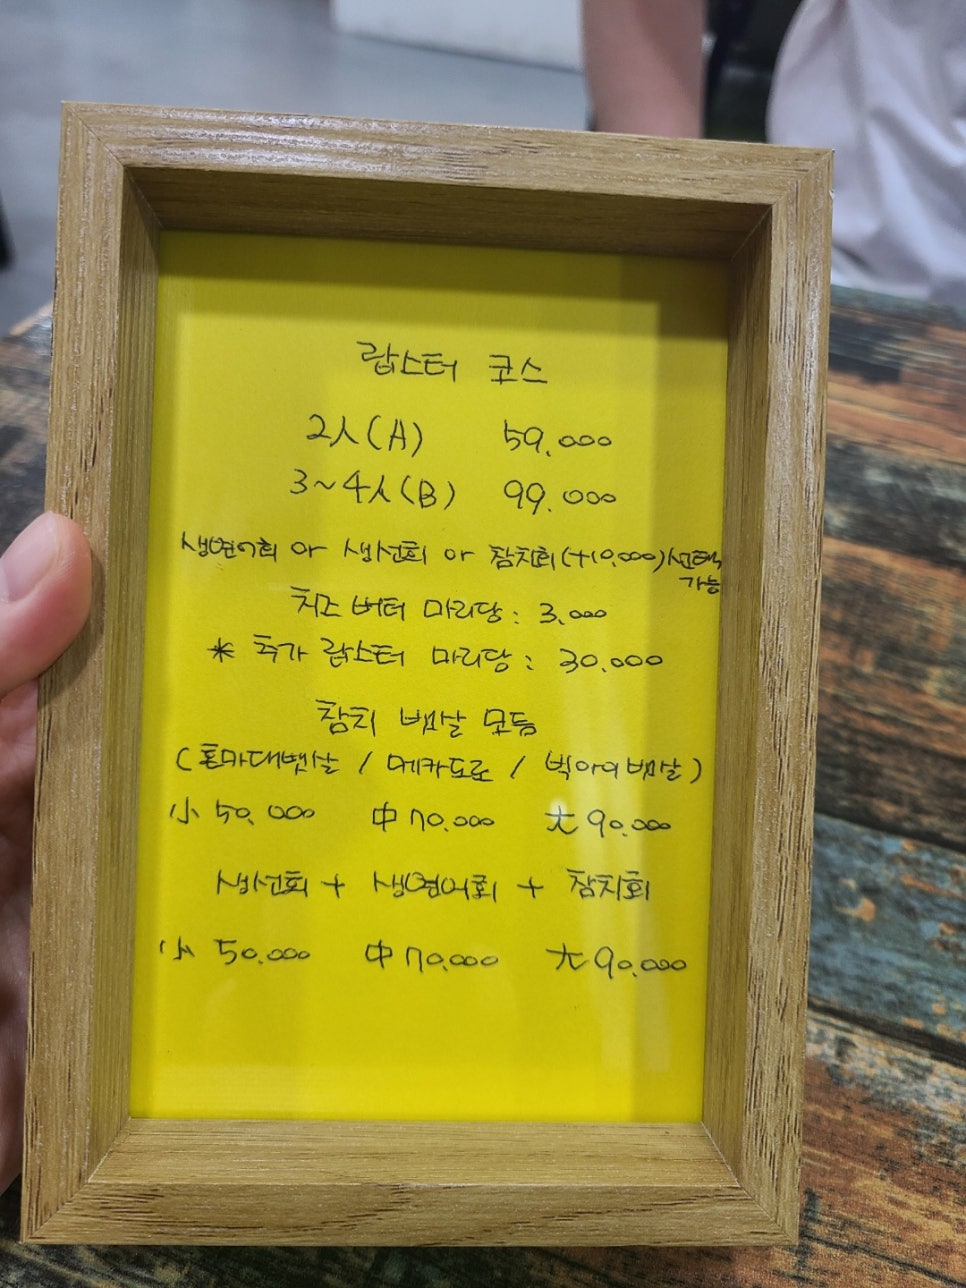 랍스터 코스
2人(A) 59.000
3~4人(B) 99.000
생연어회 or 생선회 or 참치회(+10,000)선택
가능
치즈 버터 마리당 : 3.000
* 추가 랍스터 마리당 : 30.000
참치 뱃살 모듬
(혼마대뱃살 / 메카도로 / 빅아이뱃살)
小 50.000 中 70.000 大 90.000
생선회 + 생연어회 + 참치회
小 50.000 中 70.000 大 90.000